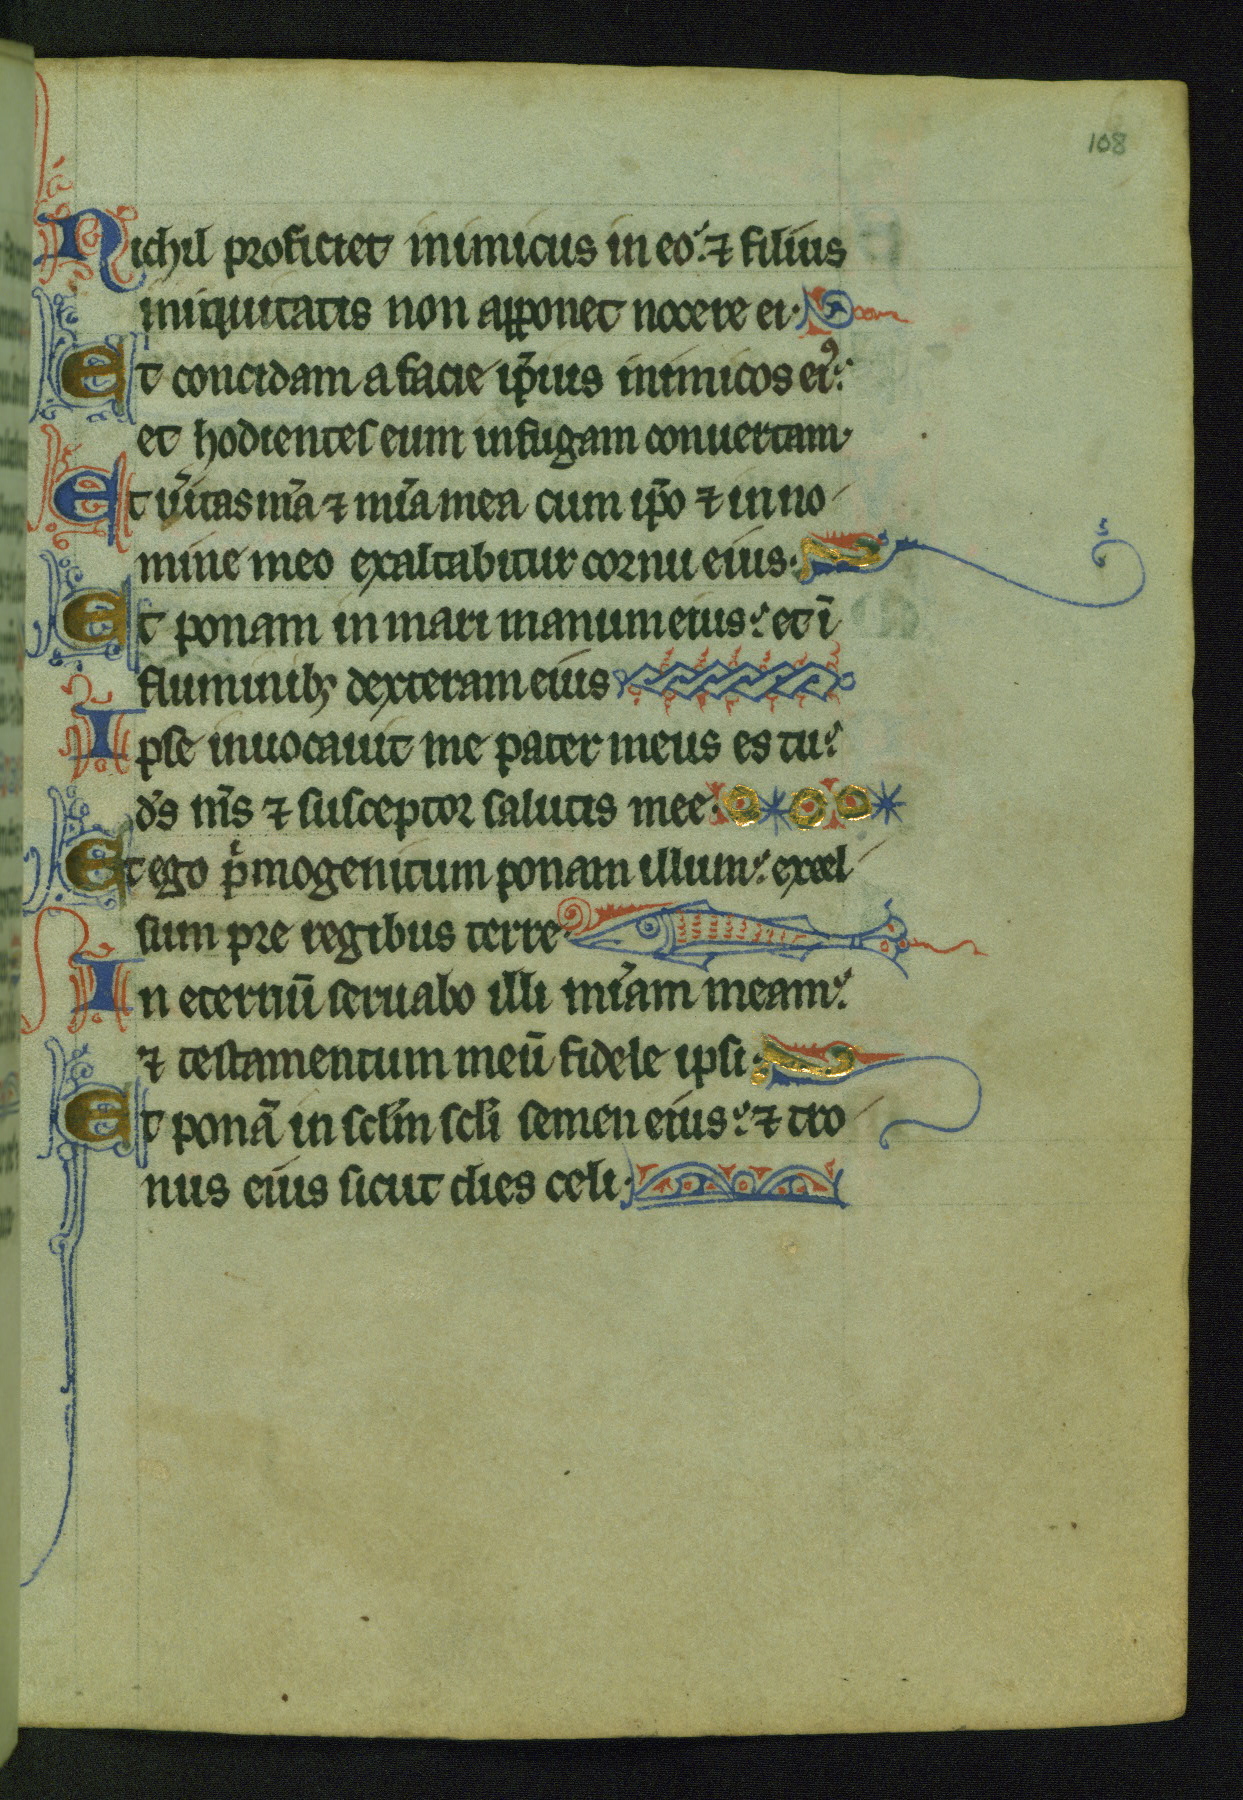 108
Nichil proficiet inimicus in eo: ⁊ filius
iniquitatis non apponet nocere ei.
Et concidam a facie ip̄ius inimicos eiꝰ:
et hodientes eum in fugam conuertam
Et uӗitas m̄a ⁊ mīa mea cum ip̄o ⁊ in no
mine meo exaltabitur cornu eius.
Et ponam in mari manum eius: et ī
fluminibꝫ dexteram eius
Ipse inuocauit me pater meus es tu:
d̄s m̄s ⁊ susceptor salutis mee.
Et ego p̍mogenitum ponam illum: excel
sum pre regibus terre
In eternū seruabo illi mīam meam:
⁊ testamentum meū fidele ipsi.
Et ponā in sclm̄ scli̅ semen eius: ⁊ tro
nus eius sicut dies celi.